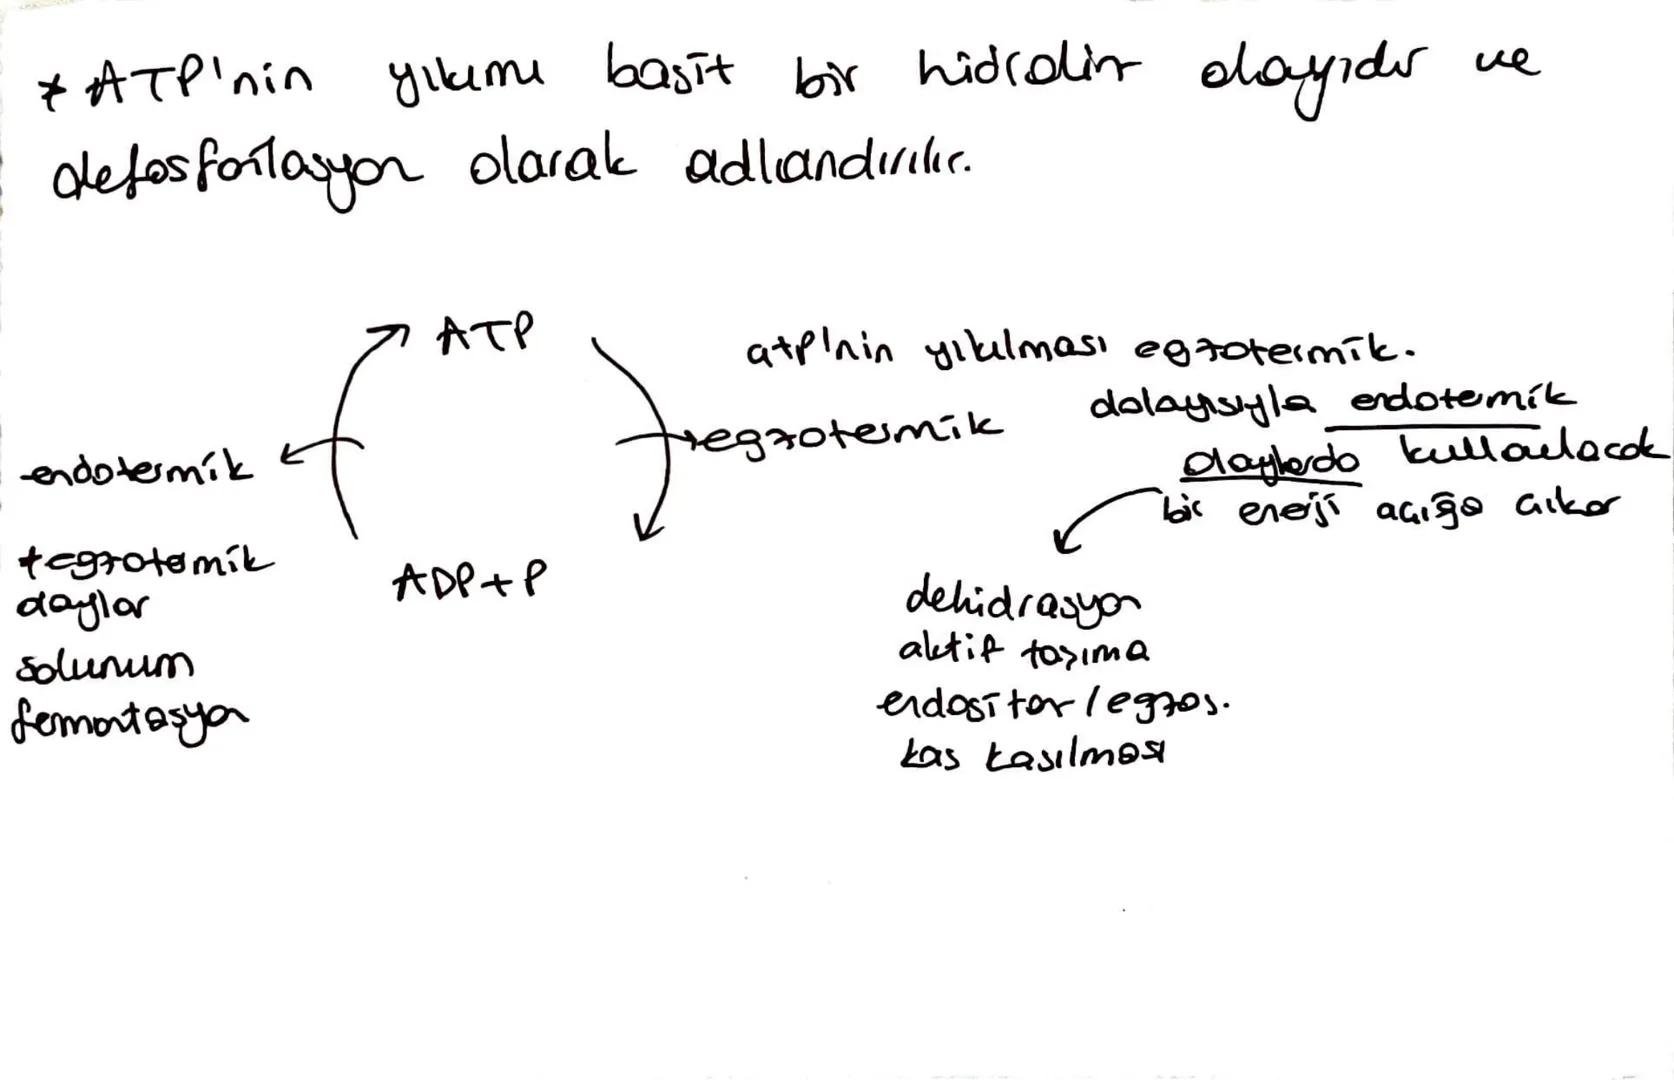 * ATP'nin yıkımı basit bir hidroliz olayıdır ve
defosforilasyon olarak adlandırılır.
ATP
atp'nin yıkılması egzotermik.
dolayısıyla endotermik
egzotermik
olaylarda kullanılacak
endotermik
bir enerji açığa çıkar
+egzotermik
olaylar
ADP+P
dehidrasyon
solunum
aktif taşıma
fermantasyon
endositoz/egzos.
kas kasılması